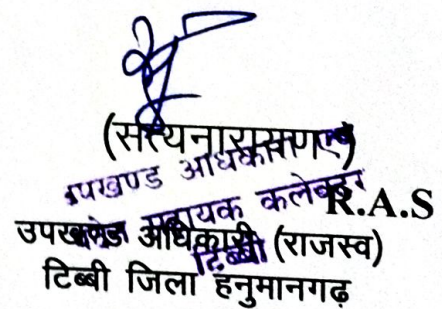 (सत्यनारायण)
उपखण्ड अधिकारी एवं
सहायक कलेक्टर
R.A.S
उपखण्ड अधिकारी (राजस्व)
टिब्बी
टिब्बी जिला हनुमानगढ़